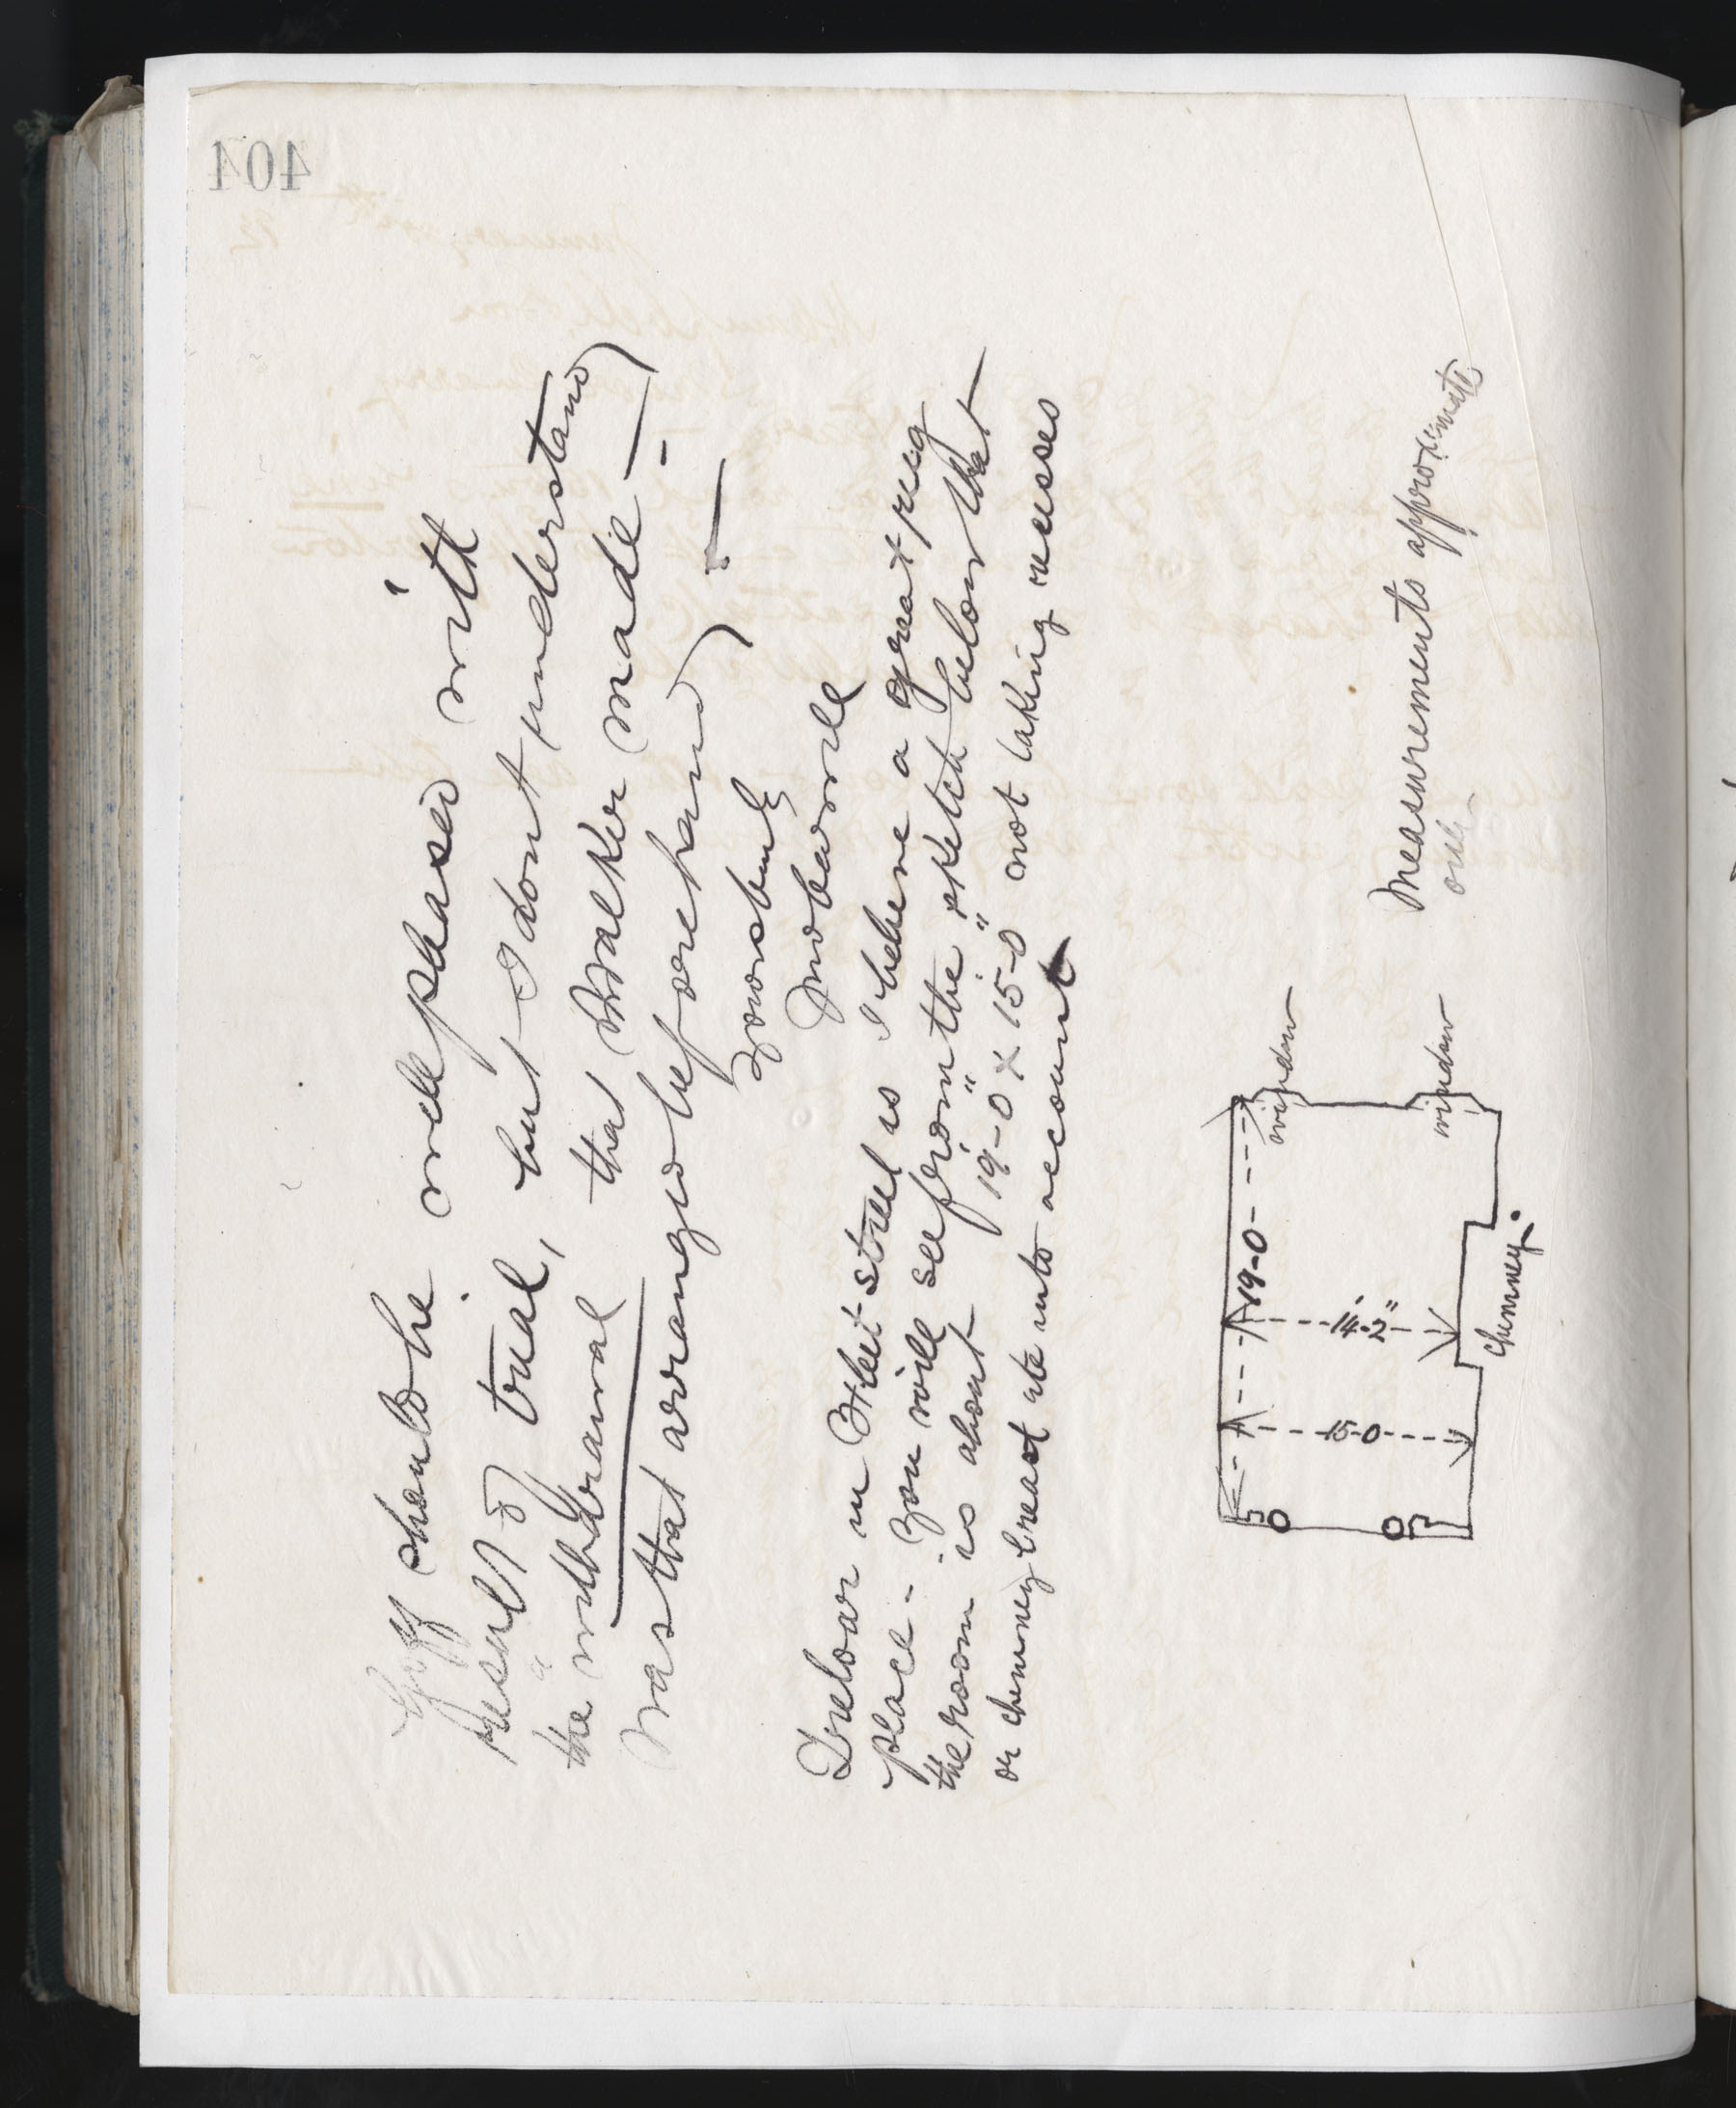 404
Goff should be well pleased with
result of trial, but I dont understand
the withdrawal that Walker made —
was that arranged beforehand) —
Yours truly
Treloar in Fleet Street is I believe a great prig
place - You will see from the sketch below that
the room is about 19'-0" x 15-0" not taking recesses
or chimney breast etc into account
window
window
19-0
14'-2"
15-0
chimney.
Measurements approximate
only